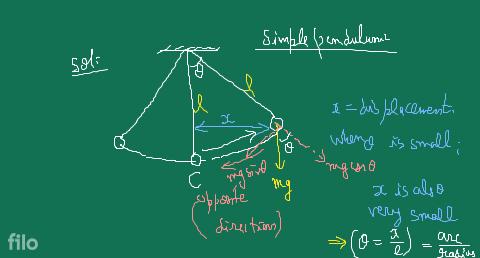 Simple pendulum
Sol:
θ
l
l
x
θ
C
mg
mg sinθ
mg cosθ
opposite
( direction )
x = displacement
when θ is small;
x is also
very small
⇒ (θ = x/l) = arc/radius
filo